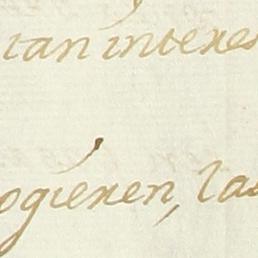 tan interes
ogieren, las